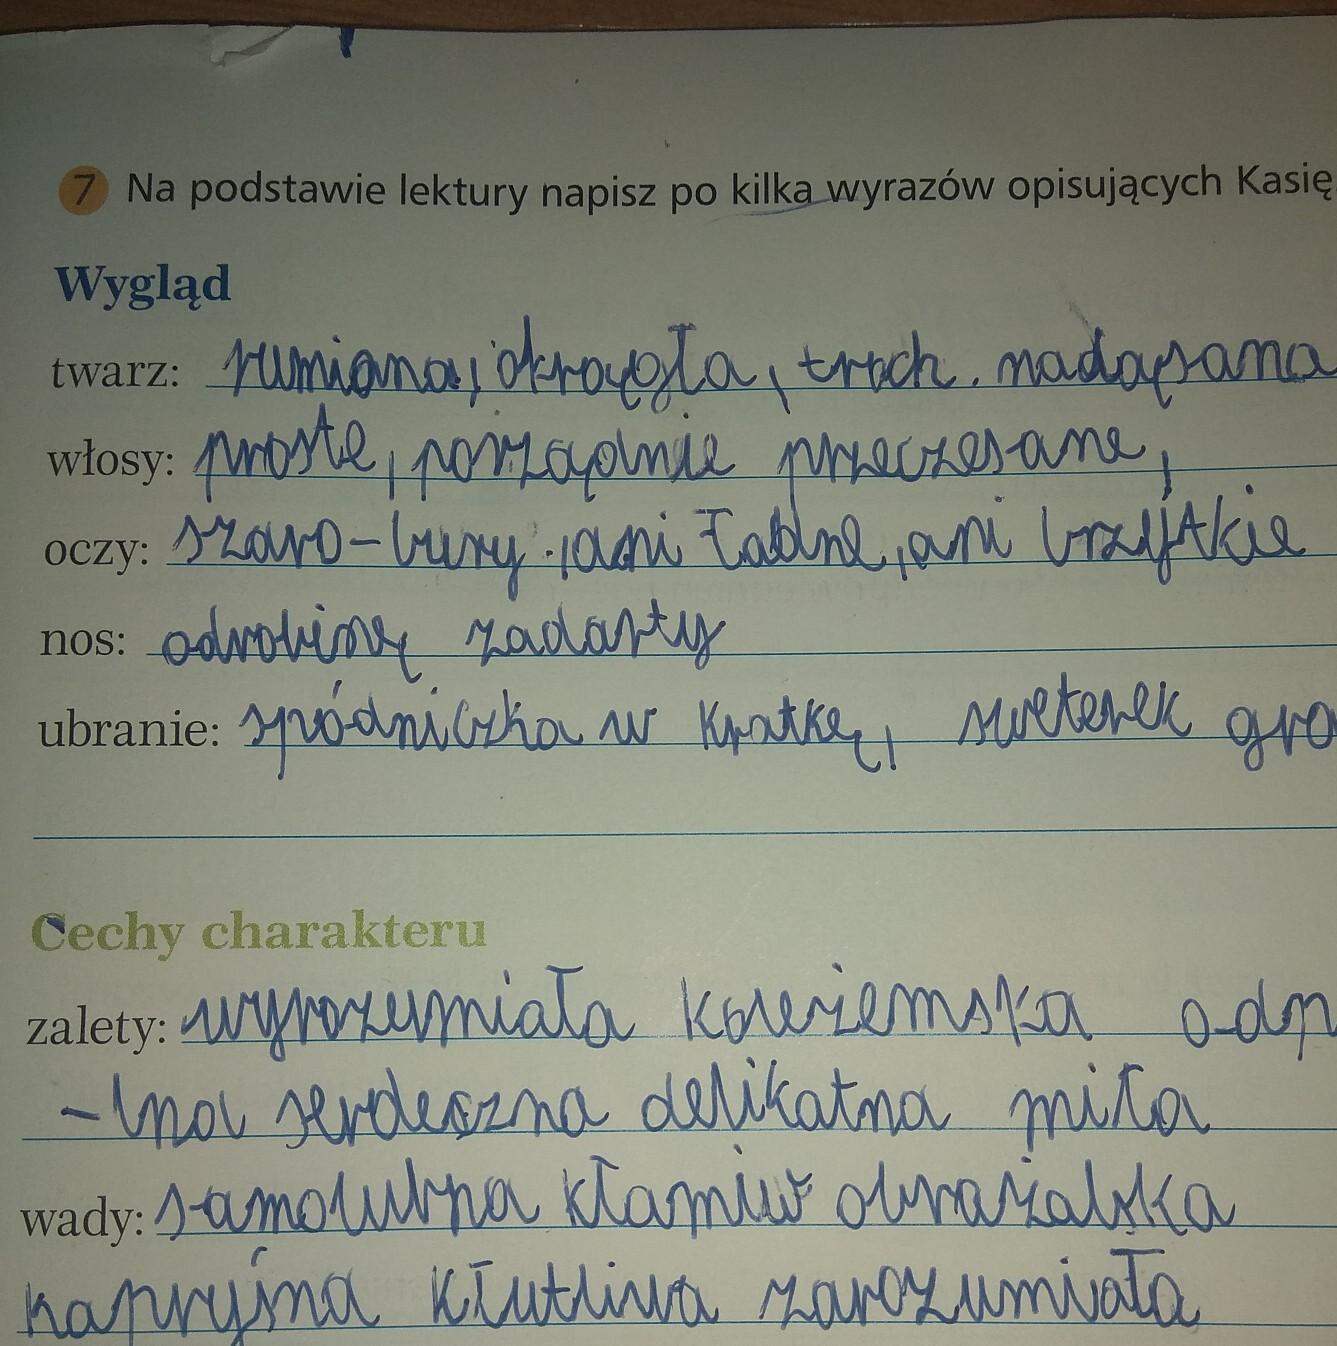 7 Na podstawie lektury napisz po kilka wyrazów opisujących Kasię
Wygląd
twarz: rumiana, okrągła, troch. nadąsana
włosy: proste, porządnie przeczesane,
oczy: szaro-bury, ani ładne, ani brzytkie
nos: odrobinę zadarty
ubranie: spódniczka w kratkę, sweterek gra
Cechy charakteru
zalety: wyrozumiała koleżenska o-dp
-lna serdeczna delikatna miła
wady: samolubna kłamiw obrażalska
kapryśna kłutliwa zarozumiała